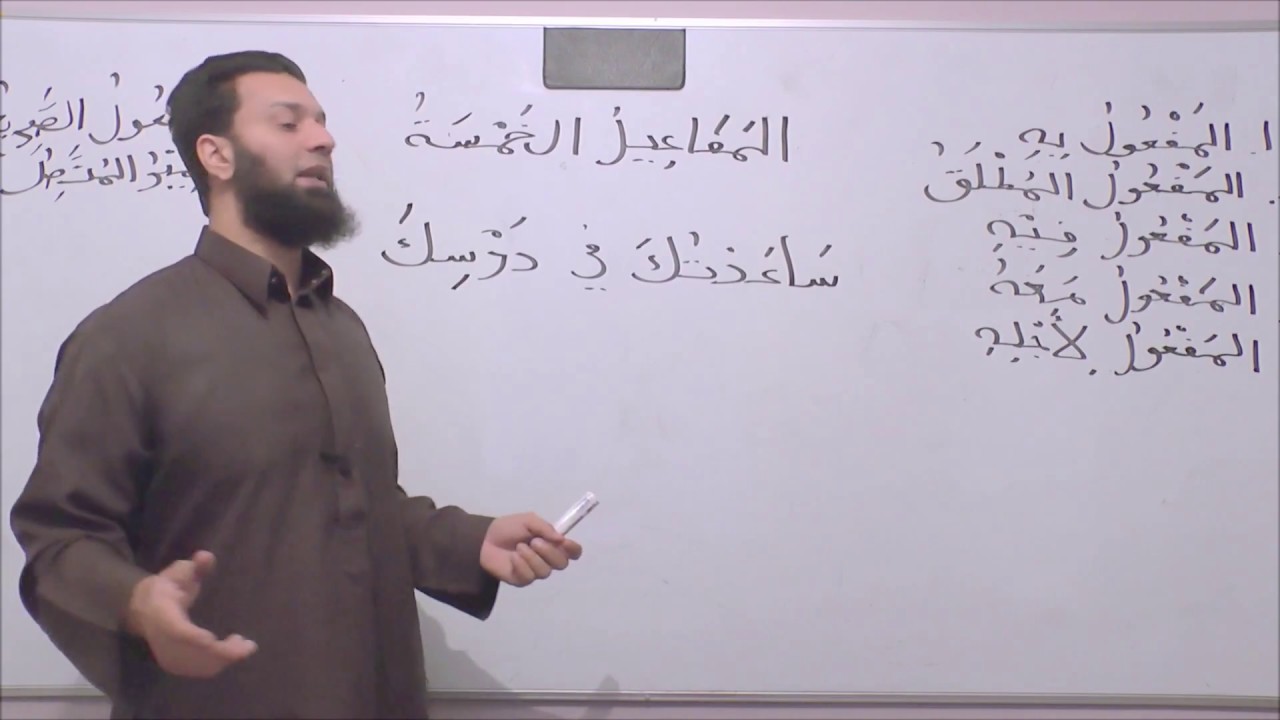 المَفَاعِيلُ الخَمْسَةُ
سَاعَدْتُكَ فِي دَرْسِكَ
١. المَفْعُولُ بِهِ
. المَفْعُولُ المُطْلَقُ
المَفْعُولُ فِيْهِ
المَفْعُولُ مَعَهُ
المَفْعُولُ لِأَجْلِهِ
عُولُ الصَّرِيْ
المُتَّصِلُ